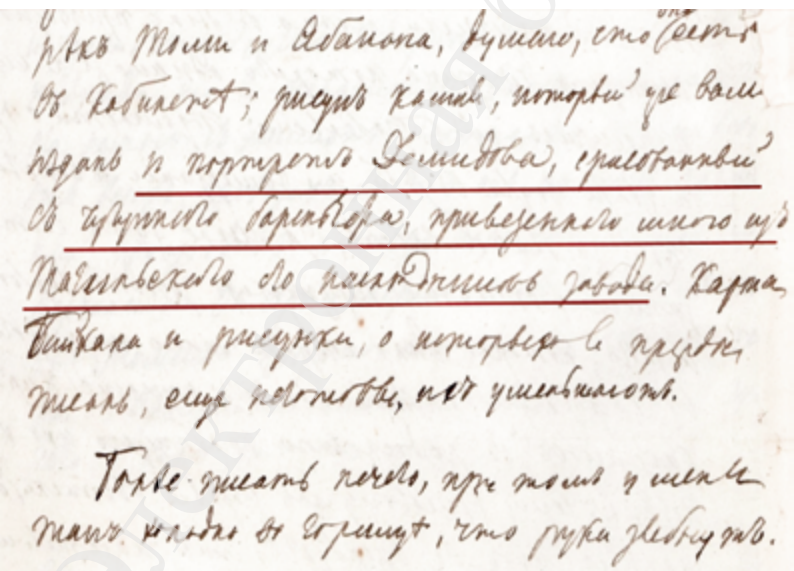 рѣкъ Томи и Абакана, думаю, что есть
въ Кабинетѣ; рисунъ камня, который уже вами
изданъ и портретъ Демидова, срисованный
съ чугуннаго барельефа, привезеннаго мною изъ
Тагильскаго его наслѣдниковъ завода. Карта
Байкала и рисунки, о которыхъ я прежде
писалъ, еще не готовы, ихъ уменьшаютъ.
Болѣе писать нечего, при томъ у меня
такъ холодно въ горницѣ, что руки зябнутъ.
Электронная